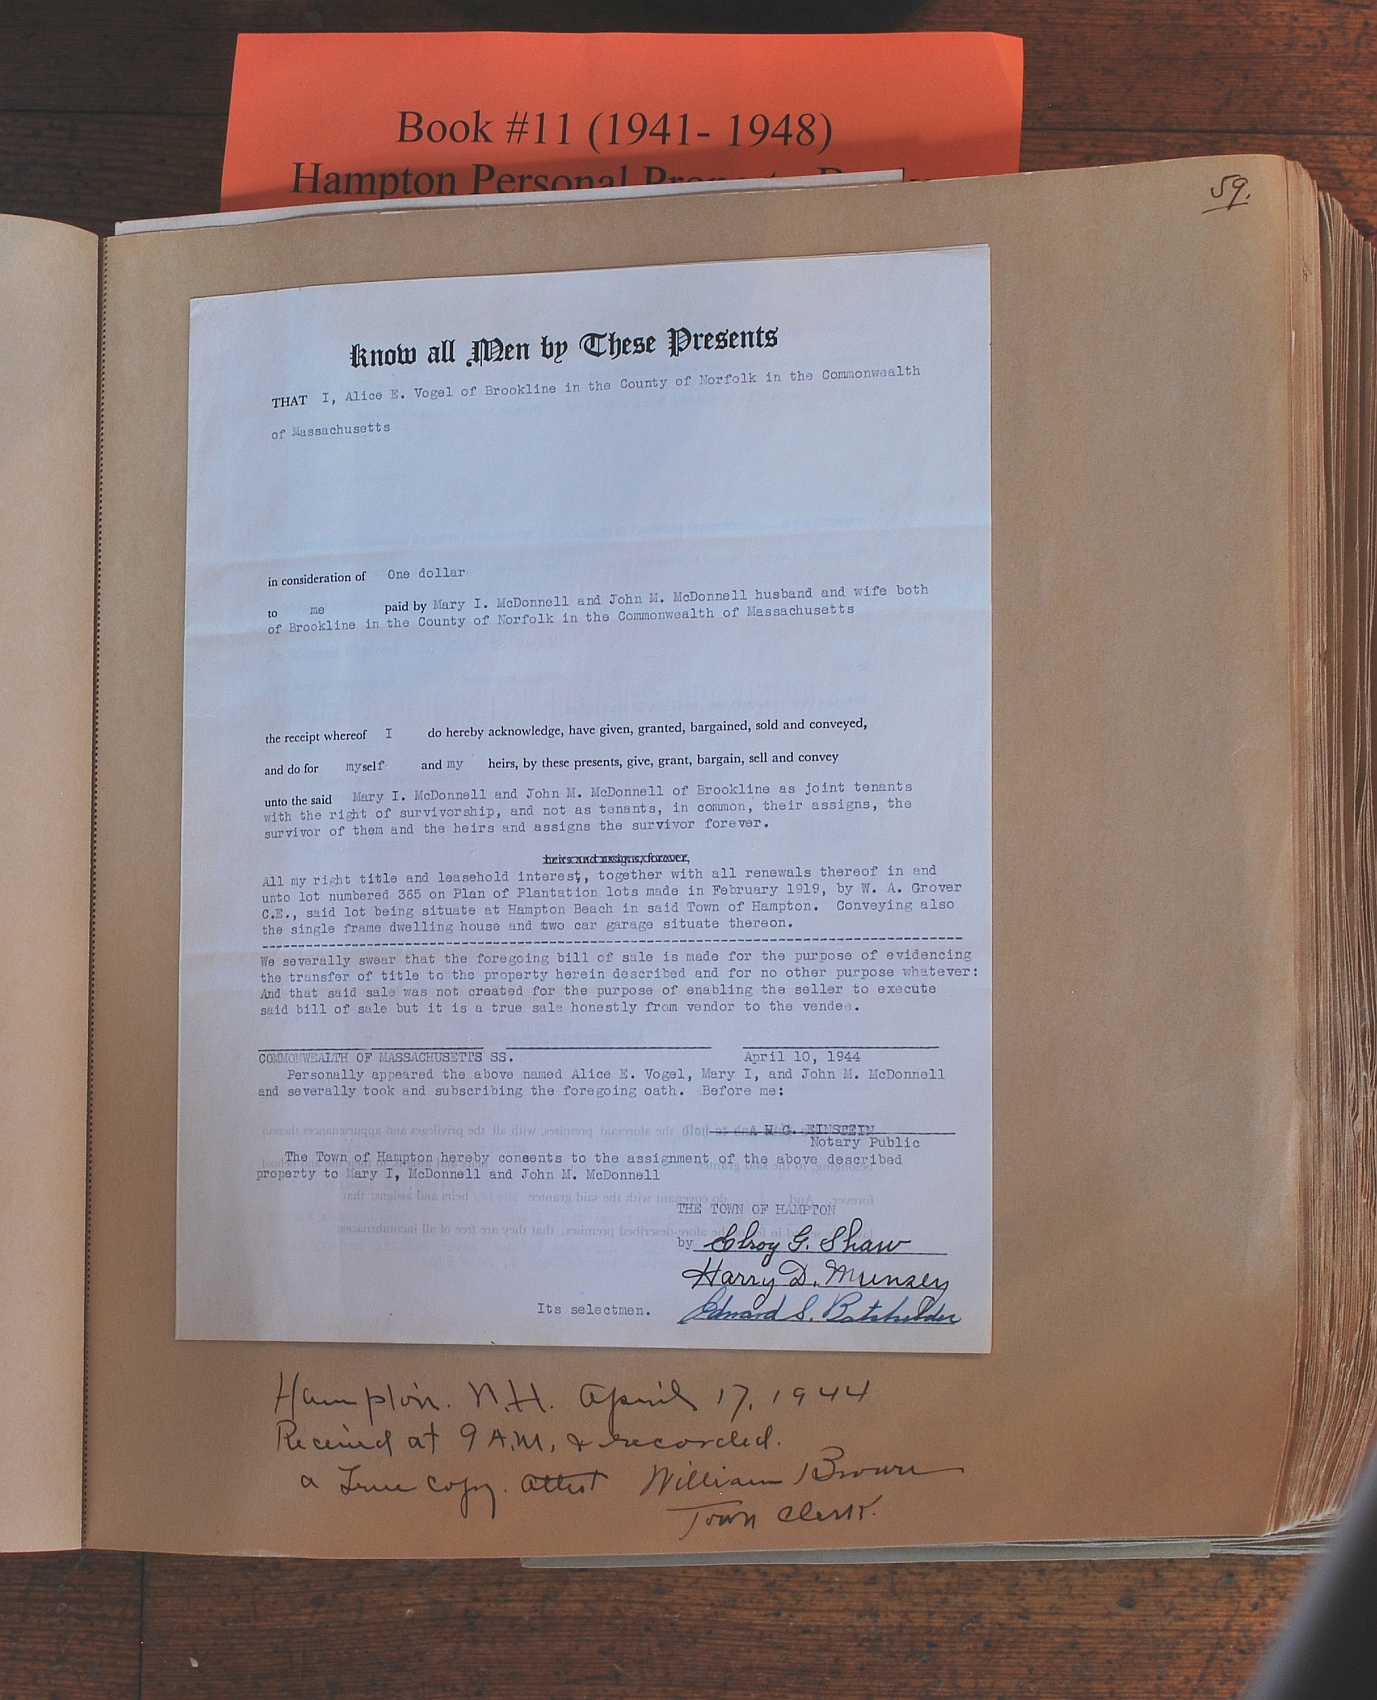 Book #11 (1941- 1948)
Hampton Personal Property
59.
Know all Men by These Presents
THAT I, Alice E. Vogel of Brookline in the County of Norfolk in the Commonwealth
of Massachusetts
in consideration of One dollar
to me paid by Mary I. McDonnell and John M. McDonnell husband and wife both
of Brookline in the County of Norfolk in the Commonwealth of Massachusetts
the receipt whereof I do hereby acknowledge, have given, granted, bargained, sold and conveyed,
and do for myself and my heirs, by these presents, give, grant, bargain, sell and convey
unto the said Mary I. McDonnell and John M. McDonnell of Brookline as joint tenants
with the right of survivorship, and not as tenants, in common, their assigns, the
survivor of them and the heirs and assigns the survivor forever.
heirs and assigns, forever,
All my right title and leasehold interest, together with all renewals thereof in and
unto lot numbered 365 on Plan of Plantation lots made in February 1919, by W. A. Grover
C.E., said lot being situate at Hampton Beach in said Town of Hampton. Conveying also
the single frame dwelling house and two car garage situate thereon.
We severally swear that the foregoing bill of sale is made for the purpose of evidencing
the transfer of title to the property herein described and for no other purpose whatever:
And that said sale was not created for the purpose of enabling the seller to execute
said bill of sale but it is a true sale honestly from vendor to the vendee.
COMMONWEALTH OF MASSACHUSETTS SS. April 10, 1944
Personally appeared the above named Alice E. Vogel, Mary I, and John M. McDonnell
and severally took and subscribing the foregoing oath. Before me:
A H G. EINSTEIN
Notary Public
The Town of Hampton hereby consents to the assignment of the above described
property to Mary I, McDonnell and John M. McDonnell
THE TOWN OF HAMPTON
by Elroy G. Shaw
Harry D. Munsey
Its selectmen. Edward S. Batchelder
Hampton. N.H. April 17, 1944
Received at 9 A.M, & recorded.
a True copy. attest William Brown
Town Clerk.